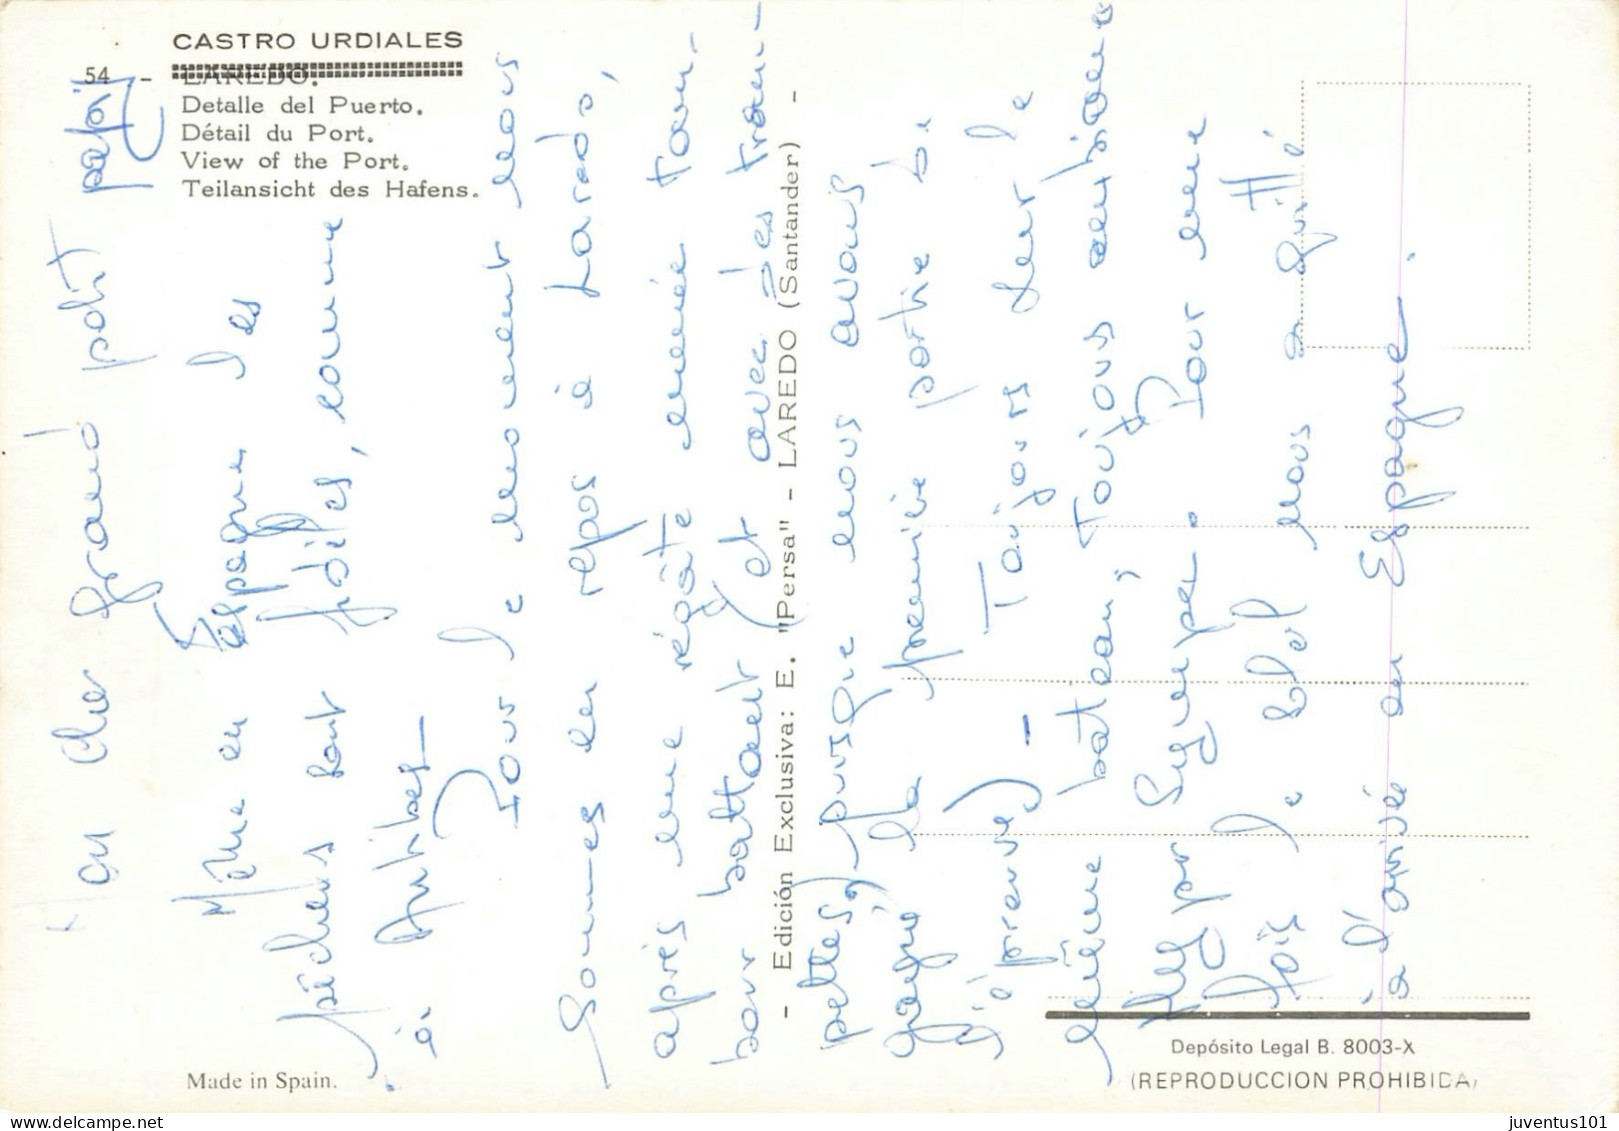 CASTRO URDIALES
54 - LAREDO.
Detalle del Puerto.
Détail du Port.
View of the Port.
Teilansicht des Hafens.
Mon cher grand petit papa
Même en Espagne les
pécheurs sont fidèles, comme
à Antibes -
Pour le moment nous
sommes en repos à Laredo,
après une régate menée tam-
bour battant (et avec des trom-
pettes, puisque nous avons
gagné la première partie de
l'épreuve) - Toujours sur le
même bateau, Toujours ambiance
super. Pour une
fois le soleil nous a quitté
à l'arrivée en Espagne.
- Edición Exclusiva: E. "Persa" - LAREDO (Santander) -
Made in Spain.
Depósito Legal B. 8003-X
(REPRODUCCION PROHIBIDA)
juventus101